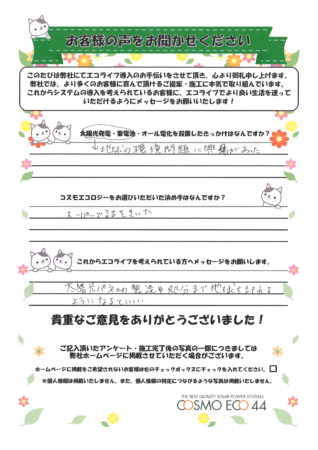 お客様の声をお聞かせください
このたびは弊社にてエコライフ導入のお手伝いをさせて頂き、心より御礼申し上げます。
弊社では、より多くのお客様に喜んで頂けるご提案・施工に本気で取り組んでいます。
これからシステムの導入を考えられているお客様に、エコライフでより良い生活を送って
いただけるようにメッセージをお願いいたします!
太陽光発電・蓄電池・オール電化を設置したきっかけはなんですか?
地球の環境問題に興味があった
コスモエコロジーをお選びいただいた決め手はなんですか?
スーパーで話をきいた
これからエコライフを考えられている方へメッセージをお願いします。
太陽光パネルの製造や処分まで地球を守れる
ようになるといい
貴重なご意見をありがとうございました!
ご記入頂いたアンケート・施工完了後の写真の一部につきましては
弊社ホームページに掲載させていただく場合がございます。
ホームページに掲載をご希望されないお客様は右のチェックボックスにチェックを入れてください。
※個人情報は掲載いたしません。また、個人情報の特定につながるような写真は掲載いたしません。
THE BEST QUALITY SOLAR POWER SYSTEMS
COSMO ECO 44